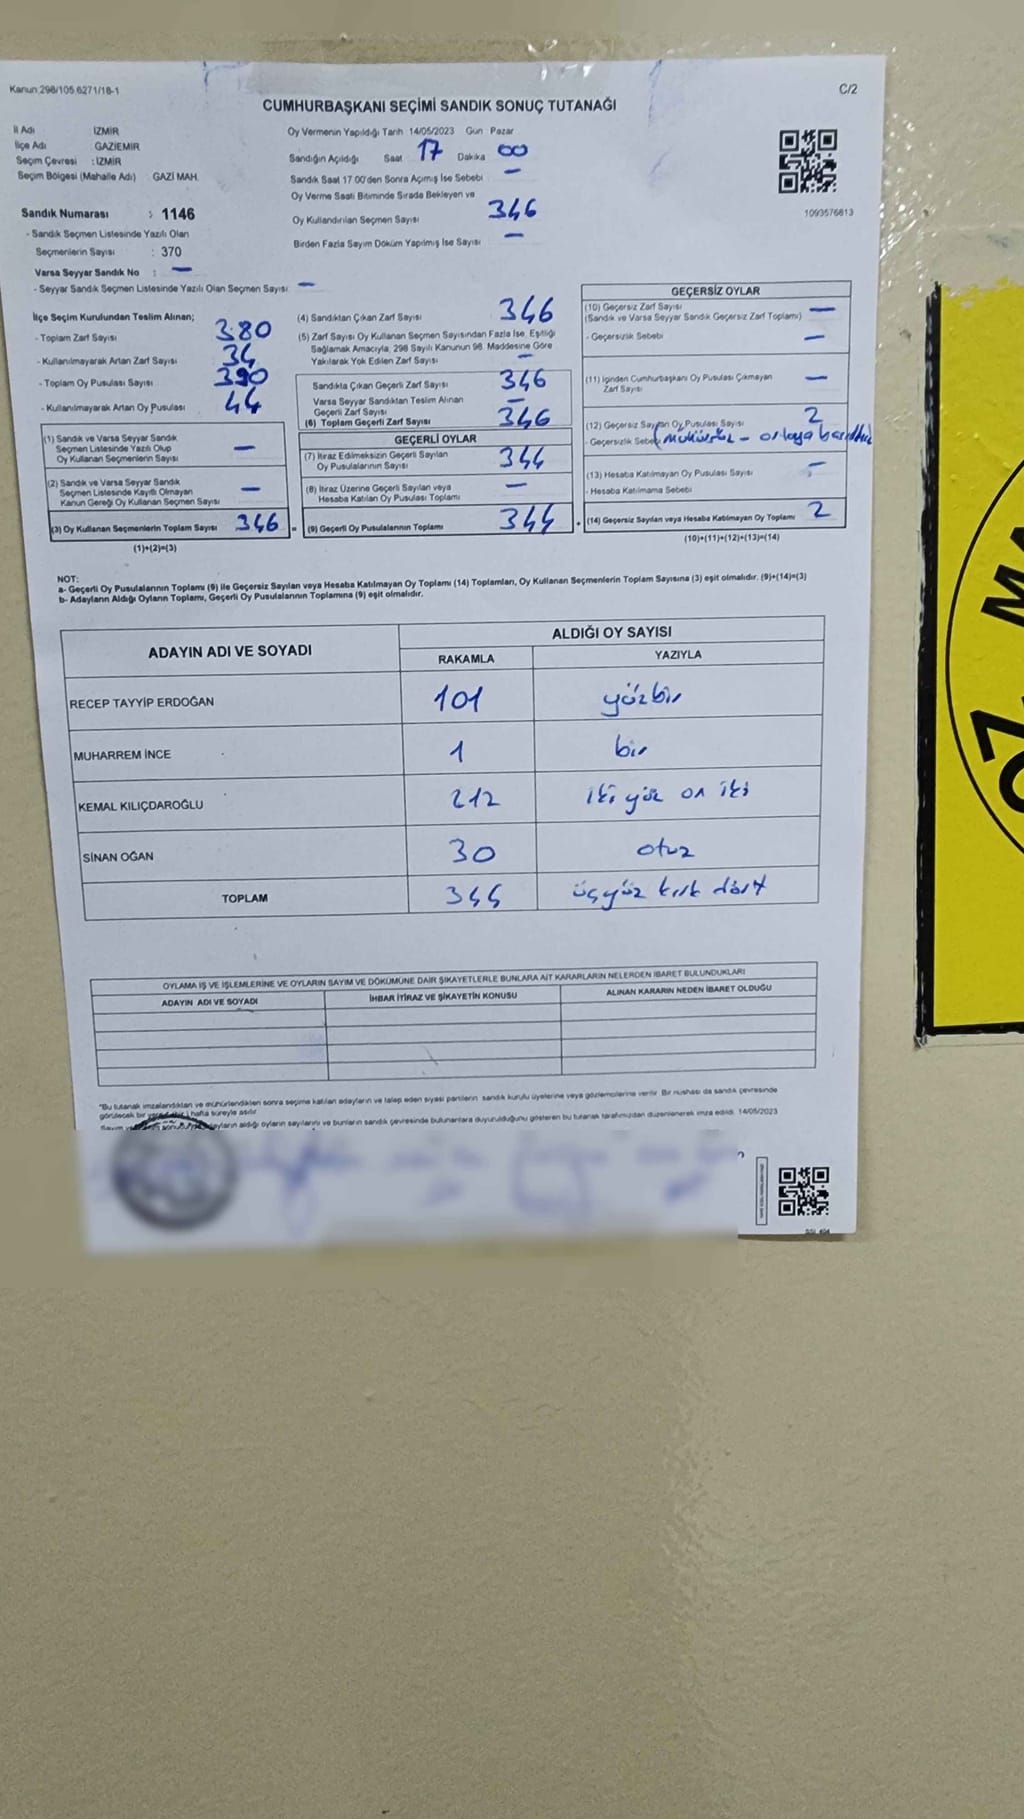 Kanun:298/105.6271/18-1
C/2
CUMHURBAŞKANI SEÇİMİ SANDIK SONUÇ TUTANAĞI
İl Adı İZMİR
İlçe Adı GAZİEMİR
Seçim Çevresi : İZMİR
Seçim Bölgesi (Mahalle Adı) GAZİ MAH.
Sandık Numarası : 1146
- Sandık Seçmen Listesinde Yazılı Olan
Seçmenlerin Sayısı : 370
Varsa Seyyar Sandık No : —
- Seyyar Sandık Seçmen Listesinde Yazılı Olan Seçmen Sayısı: —
Oy Vermenin Yapıldığı Tarih 14/05/2023 Gün : Pazar
Sandığın Açıldığı Saat 17 Dakika 00
Sandık Saat 17.00'den Sonra Açılmış İse Sebebi —
Oy Verme Saati Bitiminde Sırada Bekleyen ve
Oy Kullandırılan Seçmen Sayısı 346
Birden Fazla Sayım Döküm Yapılmış İse Sayısı —
1093576813
İlçe Seçim Kurulundan Teslim Alınan;
- Toplam Zarf Sayısı 380
- Kullanılmayarak Artan Zarf Sayısı 34
- Toplam Oy Pusulası Sayısı 390
- Kullanılmayarak Artan Oy Pusulası 44
(1) Sandık ve Varsa Seyyar Sandık
Seçmen Listesinde Yazılı Olup
Oy Kullanan Seçmenlerin Sayısı —
(2) Sandık ve Varsa Seyyar Sandık
Seçmen Listesinde Kayıtlı Olmayan
Kanun Gereği Oy Kullanan Seçmen Sayısı —
(3) Oy Kullanan Seçmenlerin Toplam Sayısı 346 =
(1)+(2)=(3)
(4) Sandıktan Çıkan Zarf Sayısı 346
(5) Zarf Sayısı Oy Kullanan Seçmen Sayısından Fazla İse, Eşitliği
Sağlamak Amacıyla, 298 Sayılı Kanunun 98. Maddesine Göre
Yakılarak Yok Edilen Zarf Sayısı —
Sandıkta Çıkan Geçerli Zarf Sayısı 346
Varsa Seyyar Sandıktan Teslim Alınan
Geçerli Zarf Sayısı —
(6) Toplam Geçerli Zarf Sayısı 346
GEÇERLİ OYLAR
(7) İtiraz Edilmeksizin Geçerli Sayılan
Oy Pusulalarının Sayısı 344
(8) İtiraz Üzerine Geçerli Sayılan veya
Hesaba Katılan Oy Pusulası Toplamı —
(9) Geçerli Oy Pusulalarının Toplamı 344 +
GEÇERSİZ OYLAR
(10) Geçersiz Zarf Sayısı
(Sandık ve Varsa Seyyar Sandık Geçersiz Zarf Toplamı) —
- Geçersizlik Sebebi —
(11) İçinden Cumhurbaşkanı Oy Pusulası Çıkmayan
Zarf Sayısı —
(12) Geçersiz Sayılan Oy Pusulası Sayısı 2
- Geçersizlik Sebebi mühürsüz - ortaya basıldı
(13) Hesaba Katılmayan Oy Pusulası Sayısı —
- Hesaba Katılmama Sebebi
(14) Geçersiz Sayılan veya Hesaba Katılmayan Oy Toplamı 2
(10)+(11)+(12)+(13)=(14)
NOT:
a- Geçerli Oy Pusulalarının Toplamı (9) ile Geçersiz Sayılan veya Hesaba Katılmayan Oy Toplamı (14) Toplamları, Oy Kullanan Seçmenlerin Toplam Sayısına (3) eşit olmalıdır. (9)+(14)=(3)
b- Adayların Aldığı Oyların Toplamı, Geçerli Oy Pusulalarının Toplamına (9) eşit olmalıdır.
ADAYIN ADI VE SOYADI ALDIĞI OY SAYISI
RAKAMLA YAZIYLA
RECEP TAYYİP ERDOĞAN 101 yüzbir
MUHARREM İNCE 1 bir
KEMAL KILIÇDAROĞLU 212 iki yüz on iki
SİNAN OĞAN 30 otuz
TOPLAM 344 üçyüz kırk dört
OYLAMA İŞ VE İŞLEMLERİNE VE OYLARIN SAYIM VE DÖKÜMÜNE DAİR ŞİKAYETLERLE BUNLARA AİT KARARLARIN NELERDEN İBARET BULUNDUKLARI
ADAYIN ADI VE SOYADI İHBAR İTİRAZ VE ŞİKAYETİN KONUSU ALINAN KARARIN NEDEN İBARET OLDUĞU
*Bu tutanak imzalandıktan ve mühürlendikten sonra seçime katılan adayların ve talep eden siyasi partilerin sandık kurulu üyelerine veya gözlemcilerine verilir. Bir nüshası da sandık çevresinde
görülecek bir yere 1 hafta süreyle asılır.
adayların aldığı oyların sayılarını ve bunların sandık çevresinde bulunanlara duyurulduğunu gösteren bu tutanak tarafımızdan düzenlenerek imza edildi. 14/05/2023